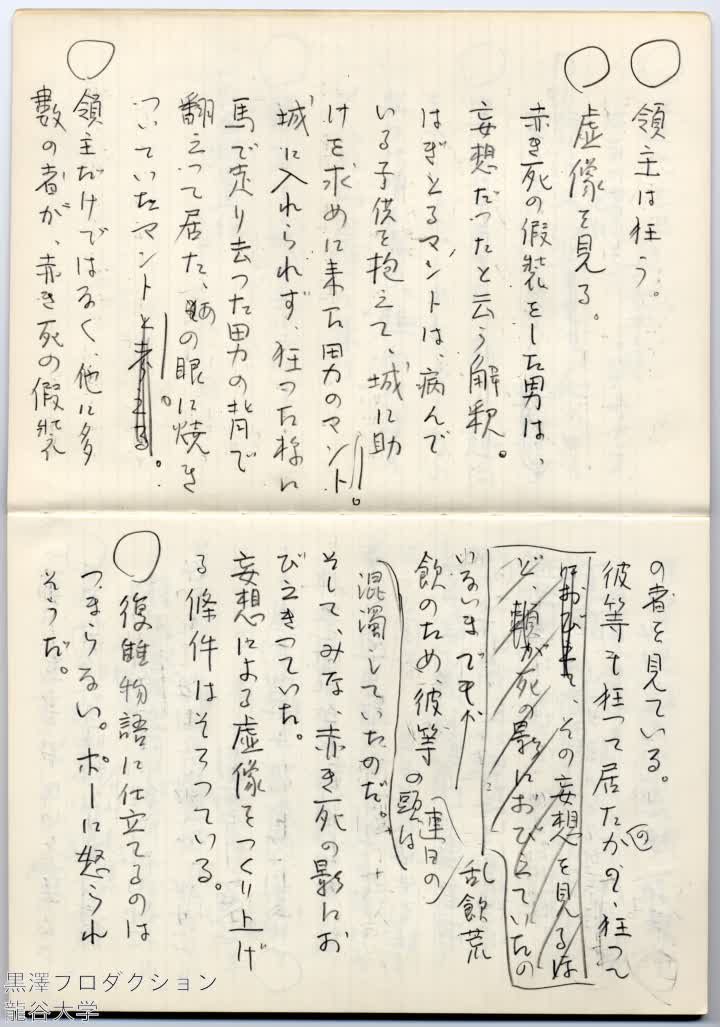 領主は狂う。
虚像を見る。
赤き死の假装をした男は、
妄想だったと云う解釈。
はぎとるマントは、病んで
いる子供を抱えて、城に助
けを求めに来た男のマント。
城に入れられず、狂った様に
馬で走り去った男の背で
翻えって居た、の眼に焼き
ついていたマント
領主だけではなく、他に多
数の者が、赤き死の假装
の者を見ている。
彼等も狂って居たかの、狂つ
その妄想を見るほ
ど、頭が死の影におびえていたの
いないまでもが
乱飲荒
飲のため、彼等の頭は
連日の
混濁していたのだ。
そして、みな、赤き死の影にお
びえきっていた。
妄想による虚像をつくり上げ
る條件はそろっている。
復雠物語に仕立てるのは
つまらない。ポーに怒られ
そうだ。
黒澤プロダクション
龍谷大学